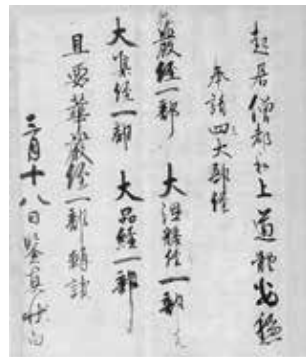 起居僧都和上道體安穩
奉請四大部経
華嚴経一部　大涅槃経一部
大集経一部　大品経一部
且要華嚴経一部輙請
三月十八日鑒真状白